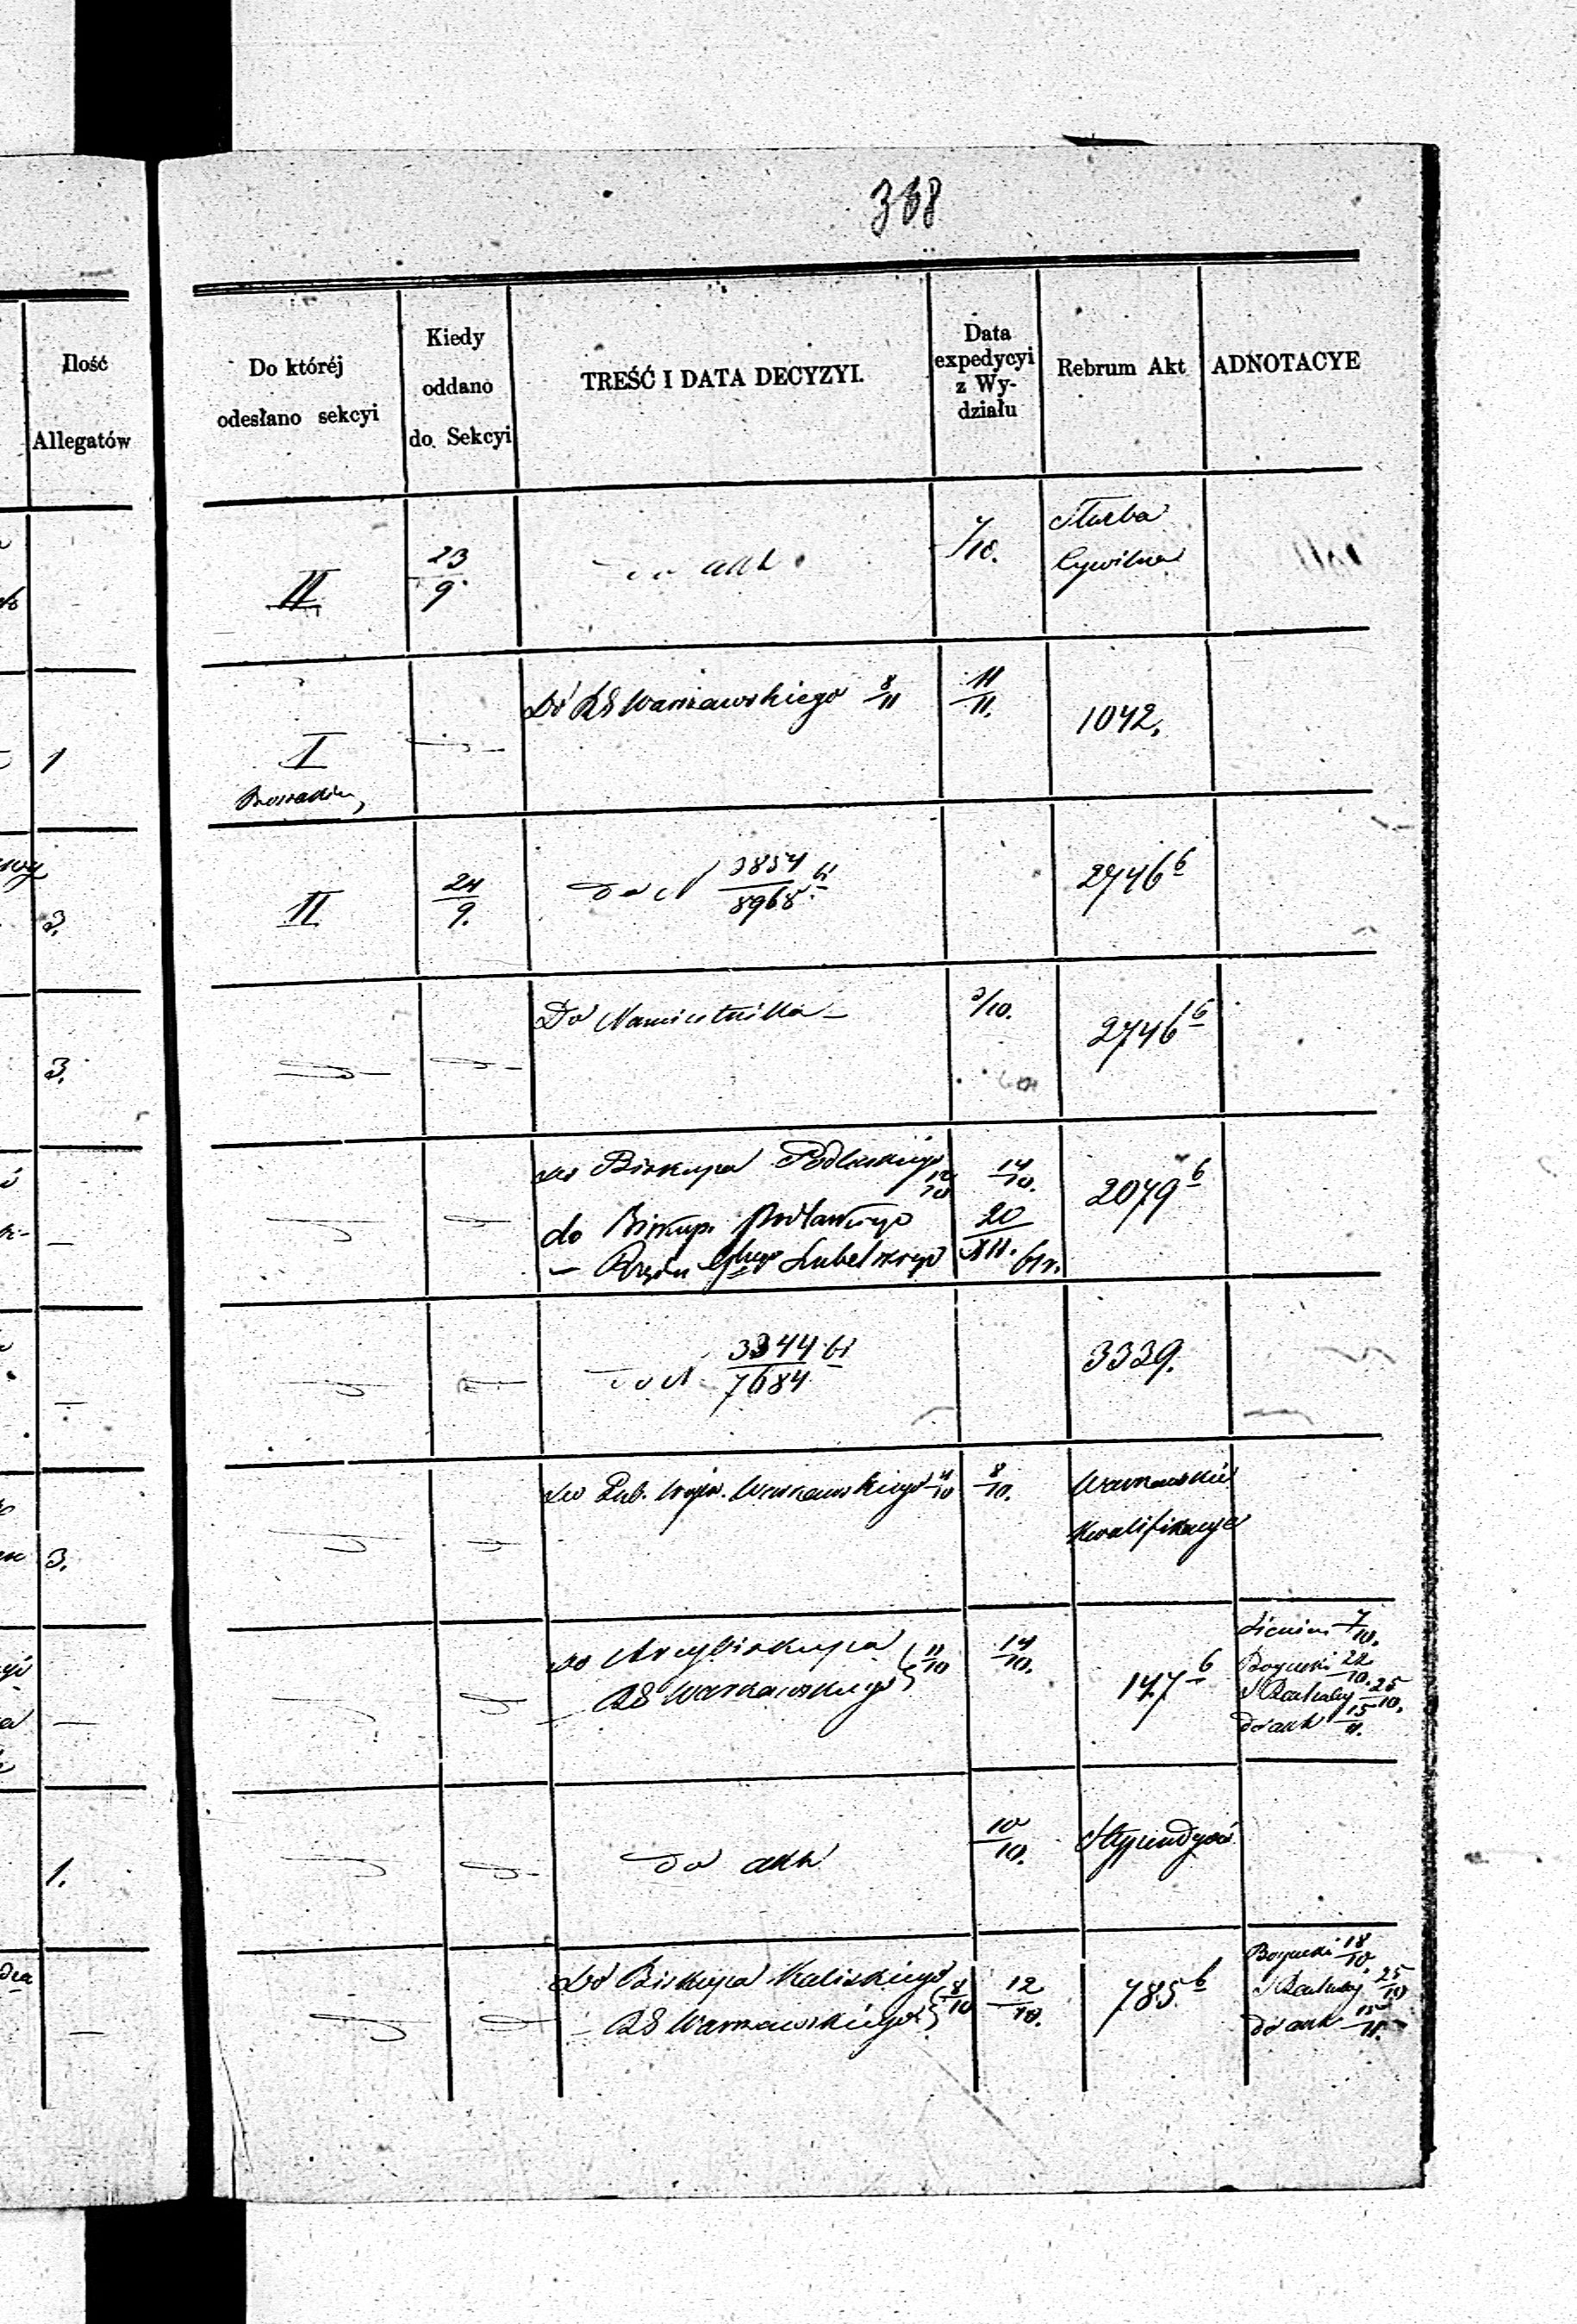 368
Ilość
Allegatów
Do któréj
odesłano sekcyi
Kiedy
oddano
do Sekcyi
TREŚĆ I DATA DECYZYI.
Data
expedycyi
z Wy-
działu
Rebrum Akt
ADNOTACYE
II
23/9.
do akt
7/10.
Służba
Cywilna
1
I
Do RG Warszawskiego 8/11
11/11.
1042.
3.
II
24/9.
do N 3854/8968 61
2746 6
3.
Do Namiestnika
3/10.
2746 6
do Biskupa Podlaskiego 12/10
14/10.
2079 6
do Biskup. Podlaskiego
20/XII. 61 r.
– Rządu Gbgo Lubelskiego
do N 3344/7684 61
3339.
3.
do Gub. Wojen. Warszawskiego 4/10
8/10.
Warszawskie
Kwalifikacye
do Arcybiskupa
– RG Warszawskiego 11/10
14/10.
147 6
7/10.
Bogucki 22/10.
25/10.
do akt 15/11.
1.
do akt
10/10.
Stypendyści
Do Biskupa Kaliskiego
– RG Warszawskiego 8/10
12/10.
785 6
Bogucki 18/10
25/10
do akt 15/11.